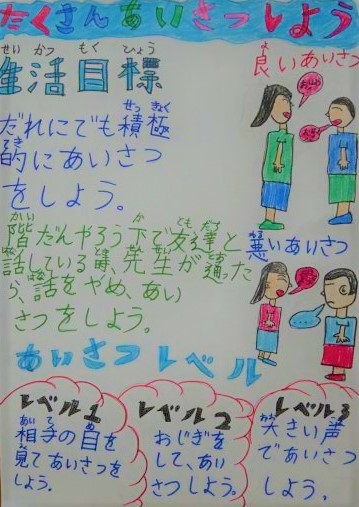 たくさんあいさつしよう
せい かつ もく ひょう
生活目標
せっ きょく
だれにでも積極
てき
的にあいさつ
をしよう。
かい か とも だち
階だんやろう下で友達と
はな とき せん せい とお
話している時、先生が通った
はなし
ら、話をやめ、あい
さつをしよう。
よ
良いあいさつ
わる
悪いあいさつ
あいさつレベル
レベル1
あい て め
相手の目を
み
見てあいさつを
しよう。
レベル2
おじぎを
して、あい
さつしよう。
レベル3
おお こえ
大きい声
であいさつ
しよう。